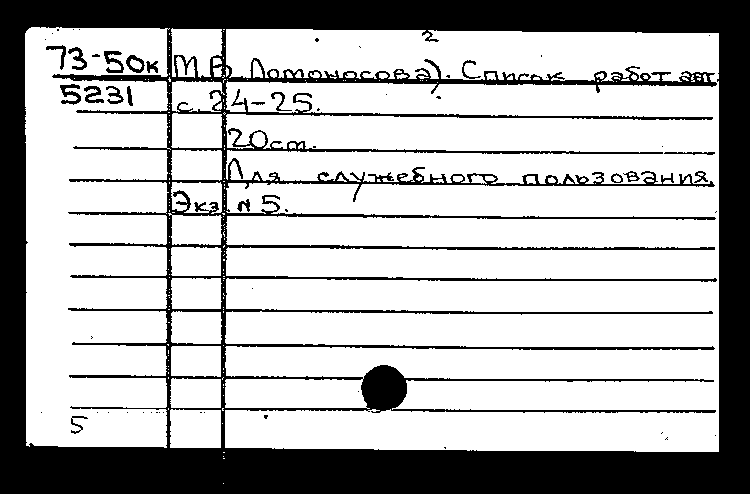 2
73-50к М.В. Ломоносова). Список работ авт.
5231 с. 24-25.
20 см.
Для служебного пользования.
Экз. N 5.
5